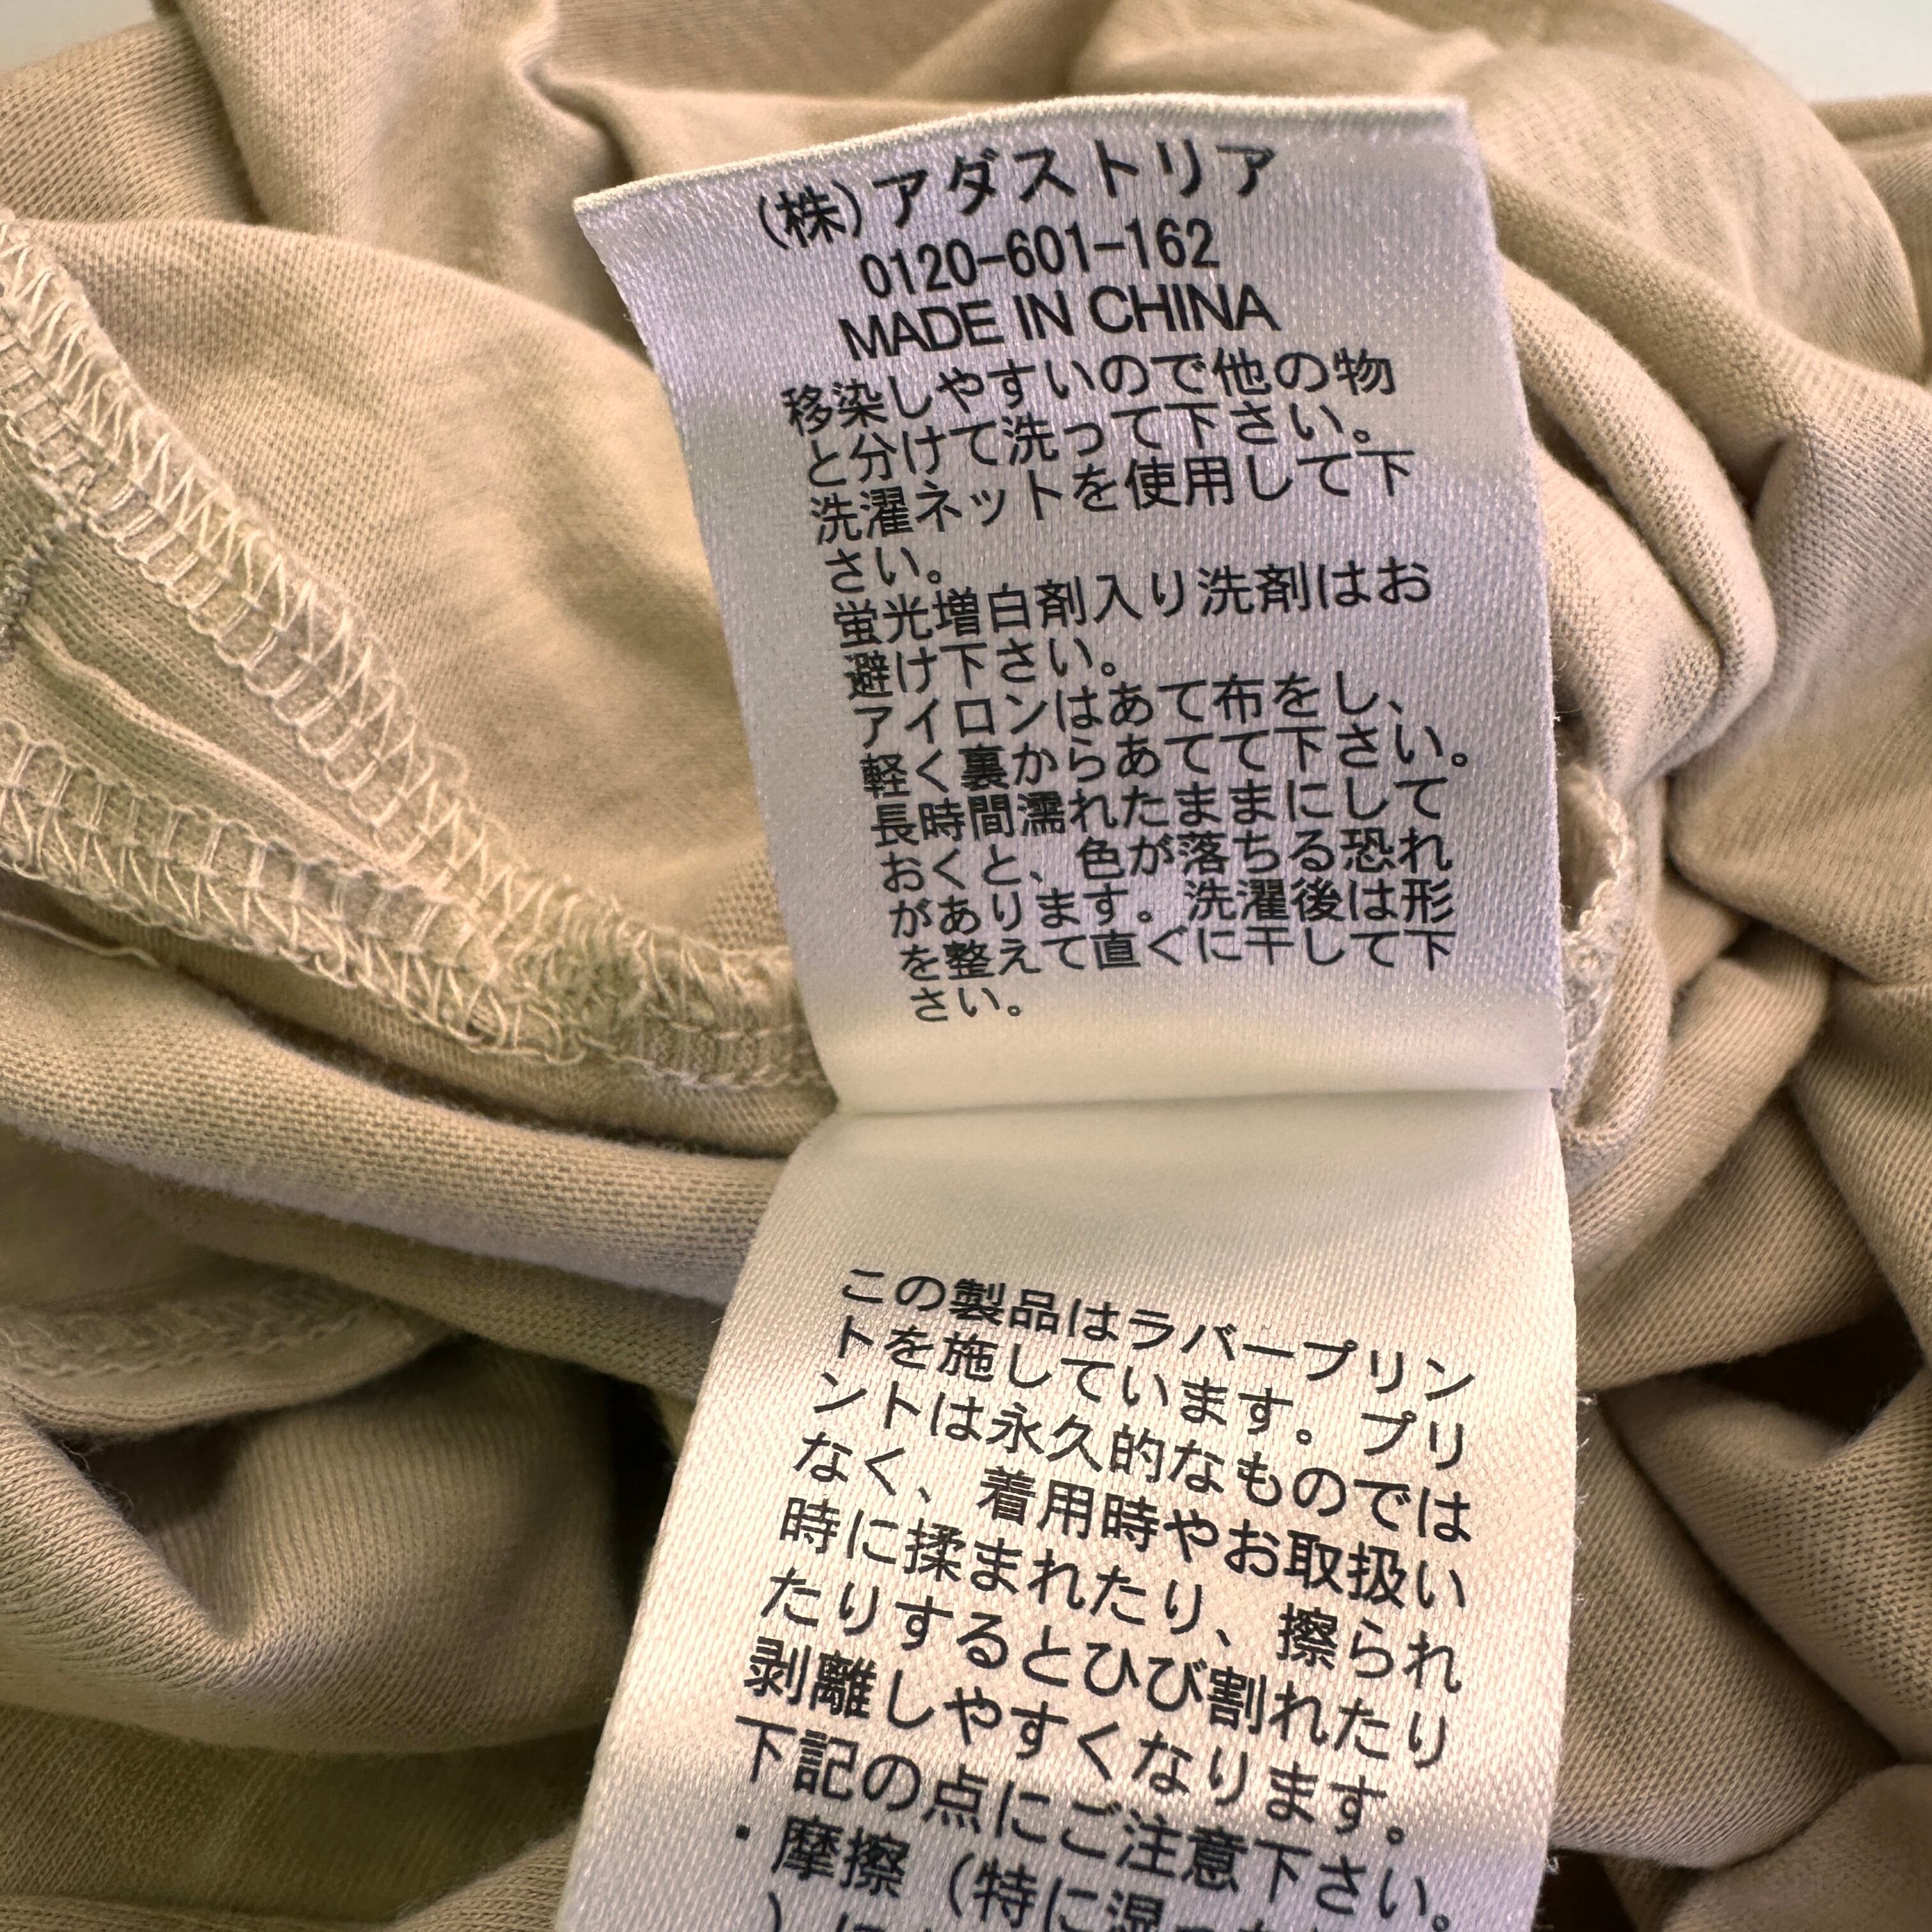 (株)アダストリア
0120-601-162
MADE IN CHINA
移染しやすいので他の物
と分けて洗って下さい。
洗濯ネットを使用して下
さい。
蛍光増白剤入り洗剤はお
避け下さい。
アイロンはあて布をし、
軽く裏からあてて下さい。
長時間濡れたままにして
おくと、色が落ちる恐れ
があります。洗濯後は形
を整えて直ぐに干して下
さい。
この製品はラバープリン
トを施しています。プリ
ントは永久的なものでは
なく、着用時やお取扱い
時に揉まれたり、擦られ
たりするとひび割れたり
剥離しやすくなります。
下記の点にご注意下さい。
・摩擦(特に湿っ